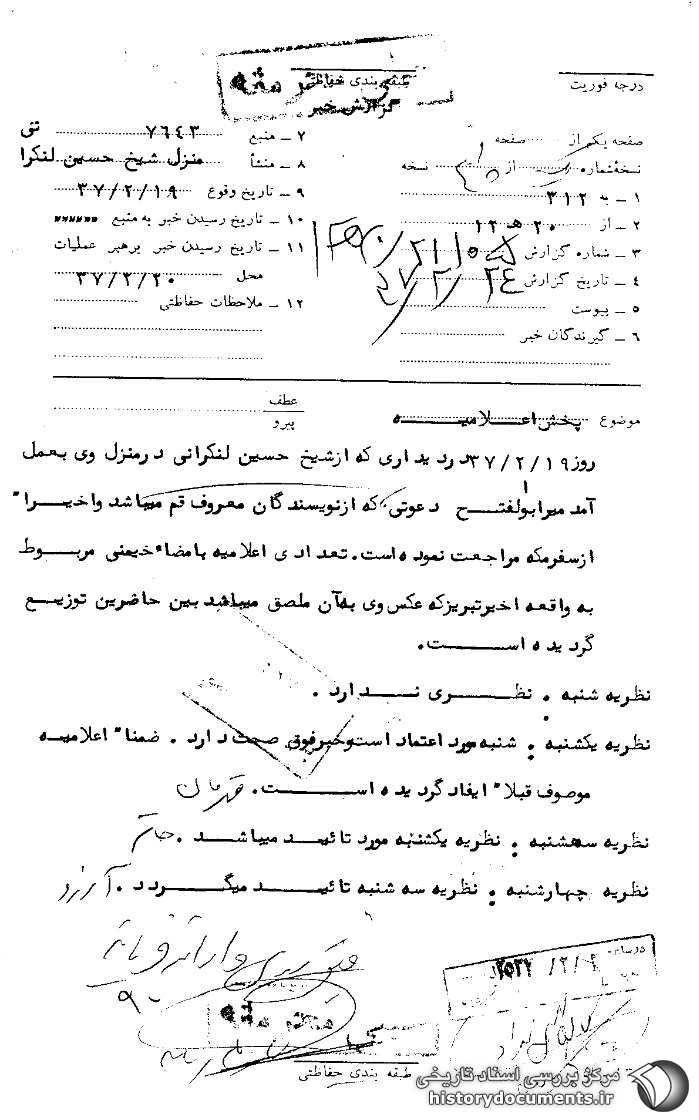 طبقه بندی حفاظتی
گزارش خبر
درجه فوریت
صفحه یکم از صفحه
نسخهٔ شماره از نسخه
۱ ـ به ۳۱۲
۲ ـ از ۲۰ هـ ۱۲
۳ ـ شماره گزارش
۴ ـ تاریخ گزارش ۳۷/۲/۲۴
۵ ـ پیوست
۶ ـ گیرندگان خبر
۷ ـ منبع ۷۶۴۳
۸ ـ منشأ منزل شیخ حسین لنکرا نی
۹ ـ تاریخ وقوع ۳۷/۲/۱۹
۱۰ ـ تاریخ رسیدن خبر به منبع
۱۱ ـ تاریخ رسیدن خبر برهبر عملیات
محل ۳۷/۲/۲۰
۱۲ ـ ملاحظات حفاظتی
موضوع پخش اعلامیه
عطف
پیرو
روز ۳۷/۲/۱۹ در دیداری که از شیخ حسین لنکرانی در منزل وی بعمل
آمد میرابولفتح دعوتی که از نویسندگان معروف قم میباشد و اخیرا"
از سفر مکه مراجعت نموده است. تعدادی اعلامیه بامضاء خیمنی مربوط
به واقعه اخیر تبریز که عکس وی به آن ملصق میباشد بین حاضرین توزیع
گردیده است.
نظریه شنبه . نظری ندارد .
نظریه یکشنبه . شنبه مورد اعتماد است و خبر فوق صحت دارد . ضمنا" اعلامیه
موصوف قبلا" ایفاد گردیده است. قهرمان
نظریه سه شنبه . نظریه یکشنبه مورد تائید میباشد . حاتم
نظریه چهارشنبه . نظریه سه شنبه تائید میگردد .
۹۰
۲۵۳۷/۲/
طبقه بندی حفاظتی
مرکز بررسی اسناد تاریخی
historydocuments.ir